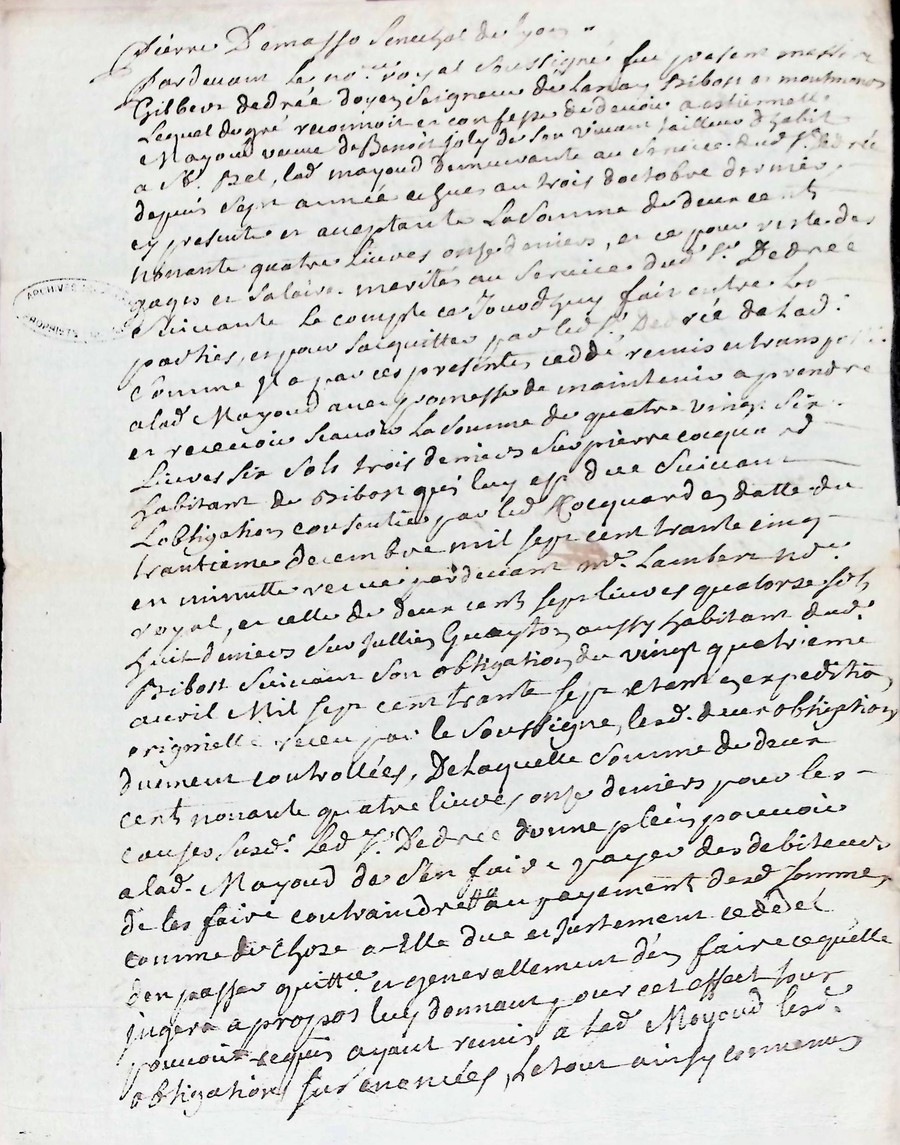 Pierre Demasso Senechal de lyon
Pardevant le no.re royal Soussigné fut present messire
Gilbert dedrée doyen Seigneur de Ribost et
Lequel degré reconnoit et confesse devoir a
Mayoud veuve de Benoit joly de Son vivant tailleur d'habit
a St. Bel, lad. mayoud demeurante au Service dud. Sr. Dedrée
depuis Sept année echues au trois d'octobre dernier,
cy presente et acceptante La Somme de deux cent
nonante quatre Livres onze deniers, et ce pour reste des
gages et Salaire merités au Service dud. Sr. Dedrée
Suivante le compte ce Jourdhuy fait entre Les
parties, et pour Sacquitter par led. Sr. Dedrée de Lad.
Somme Il a par ces presentes ceddé remis et transporté
a lad. Mayoud avec promesse de maintenir a prendre
et recevoir Scavoir La Somme de quatre vingt Six
Livres Six Sols trois deniers Sur pierre cocquard
habitant de Ribost qui luy est due Suivant
Lobligation consentie par led. Cocquard en datte du
trantieme decembre mil Sept cent trante cinq
en minutte receue pardevant me. Lambert no.re
royal, et celle de deux cent Sept livres quatorze Sols
huit deniers Sur Jullien Guayton aussy habitant dud.
Ribost Suivant Son obligation du vingt quatrieme
avril Mil Sept cent trante Sept etant en expedition
originelle receu par le Soussigné, lesd. deux obligations
duement controllées, De laquelle Somme de deux
cent nonante quatre livres onze deniers pour les
causes Susd. Led. Sr. Dedrée donne plein pouvoir
a lad. Mayoud de S'en faire payer des debiteurs
de les faire contraindre au payement desd. Sommes
comme de Chose a Elle due et Justement
den passer quittce. et generallement d'en faire ce quelle
jugera a propos luy donnant pour cet effect tout
pouvoir requis ayant remis a Lad. Mayoud lesd.
obligations Sus enoncées, Le tout ainsy convenu
ARCHIVES